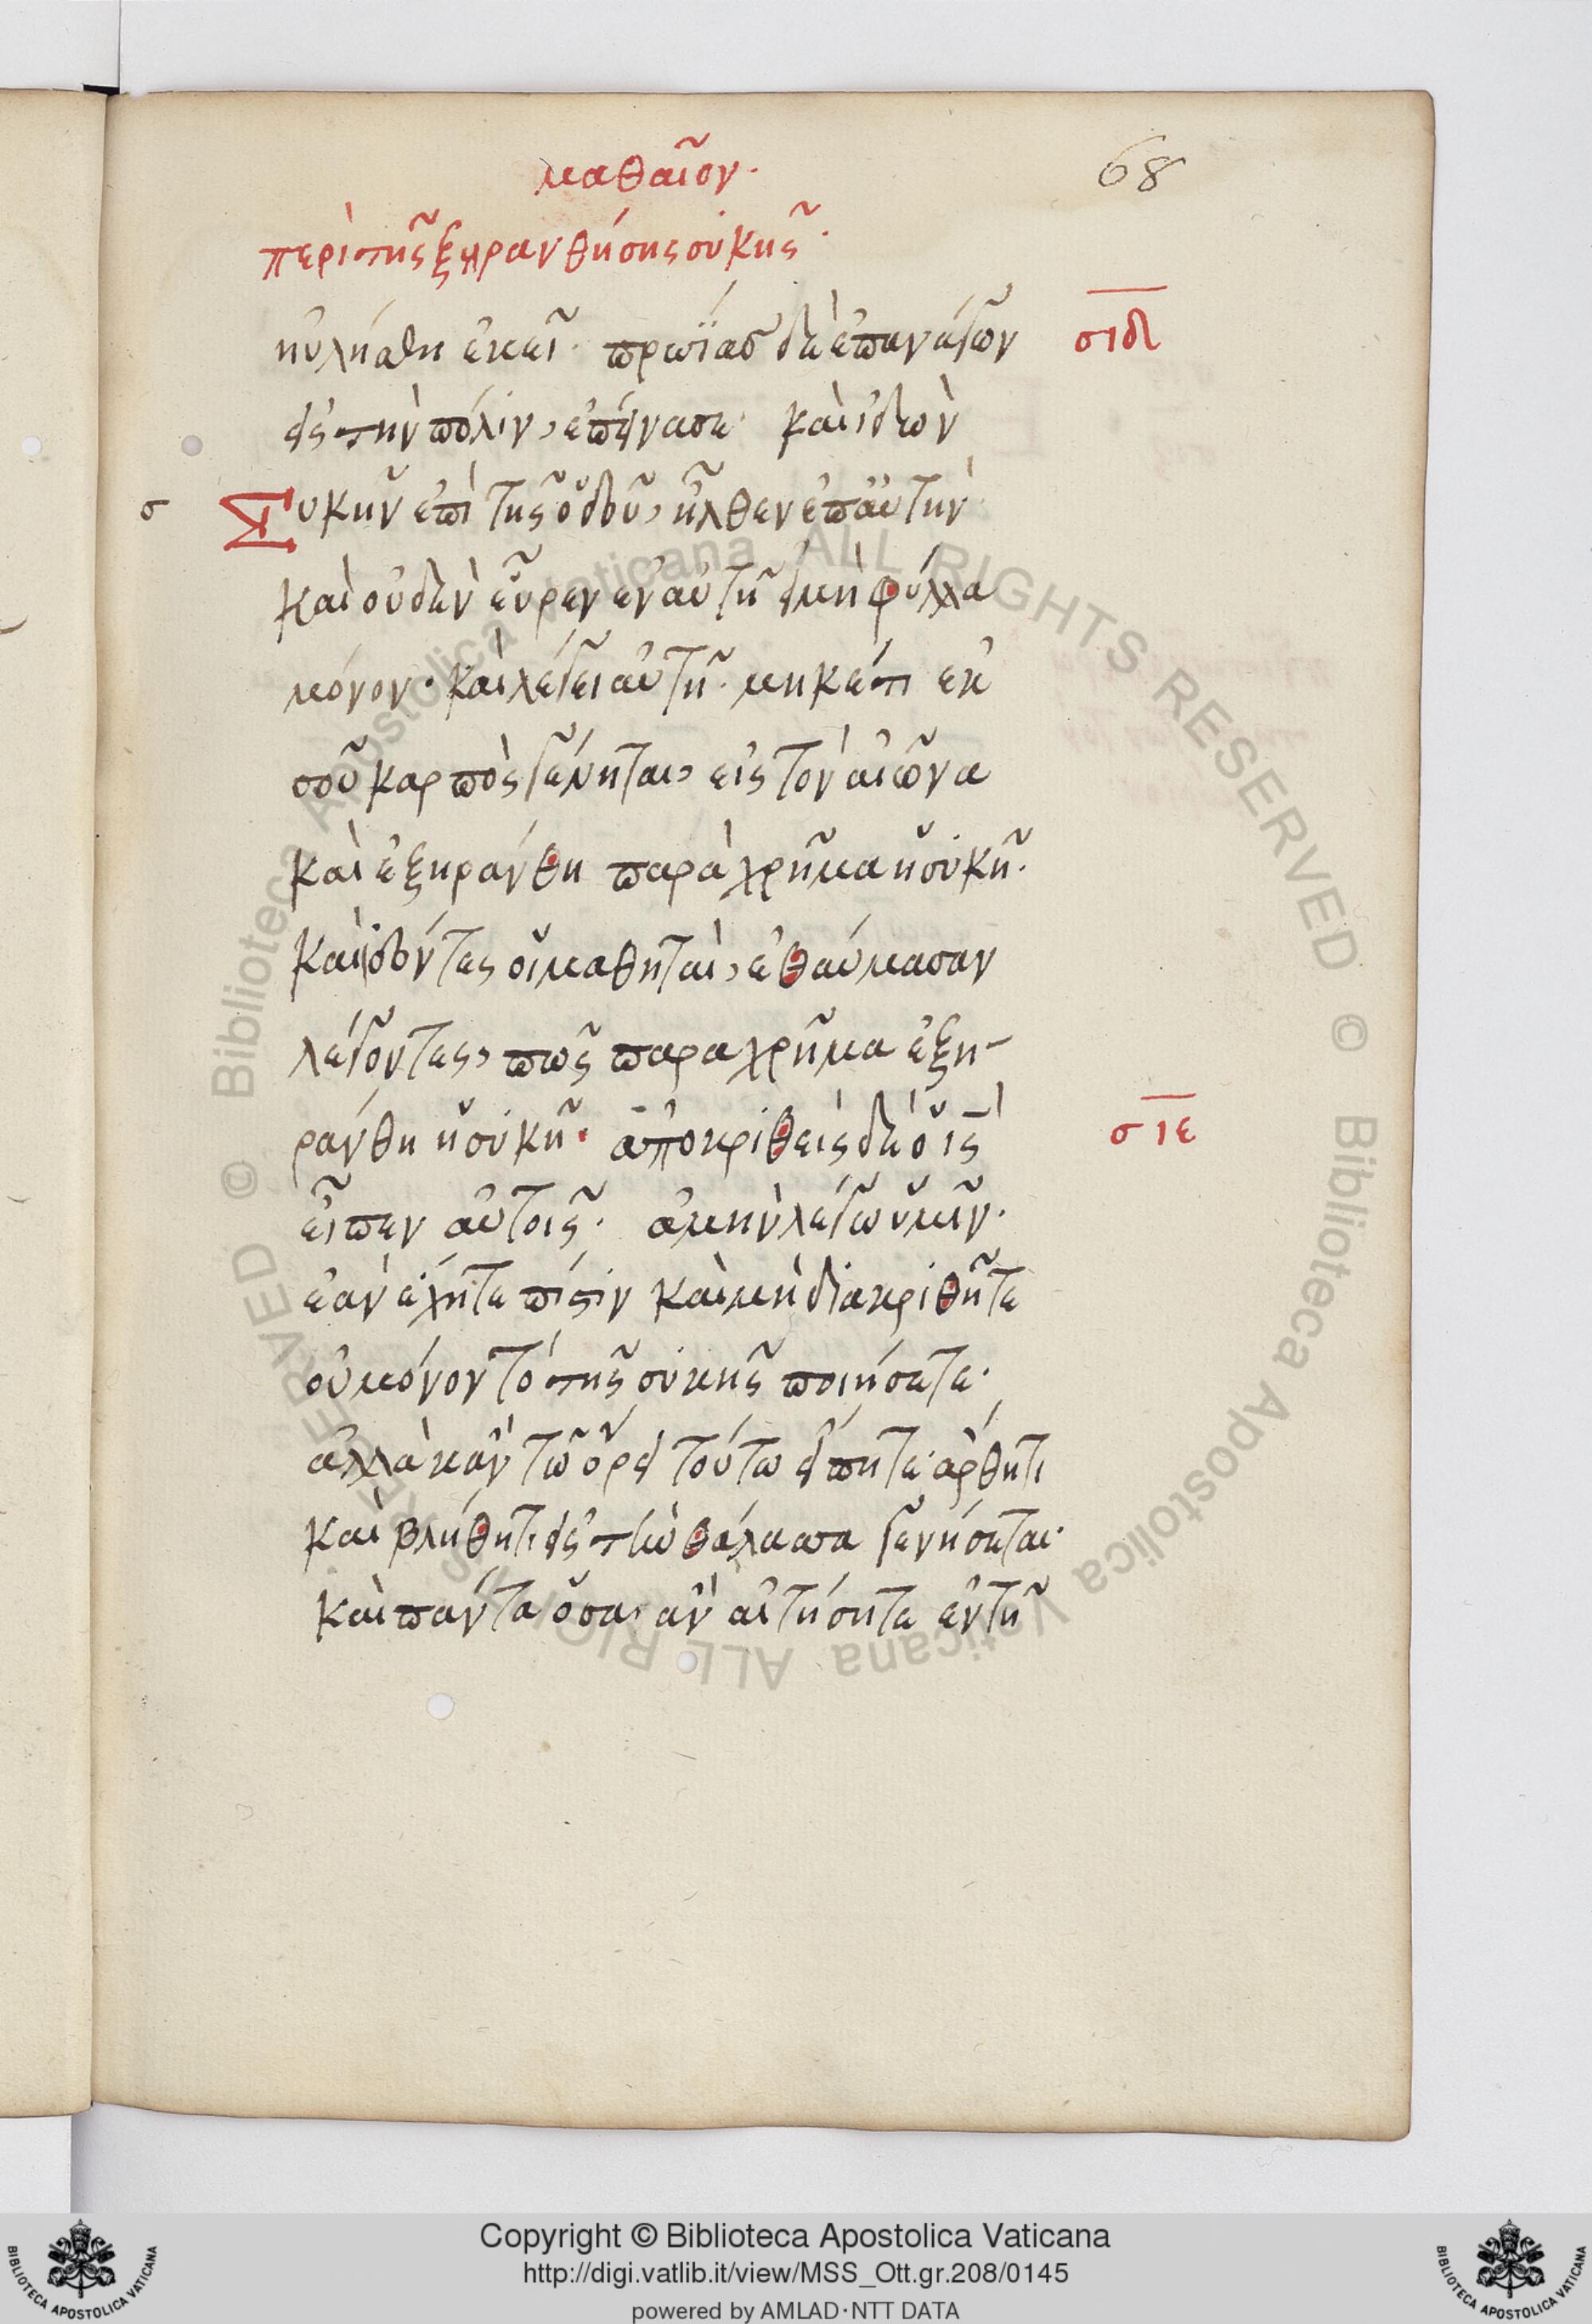 ματθαῖον.
68
περὶ τῆς ξηρανθήσης συκῆς.
ηὐλήσθη ἐκεῖ. πρωΐας δὲ ἐπανάγων
σιδ
εἰς τὴν πόλιν, ἐπείνασε. καὶ ἰδὼν
σ Συκῆν ἐπὶ τῆς ὁδοῦ, ἦλθεν ἐπ' αὐτὴν
καὶ οὐδὲν εὗρεν ἐν αὐτῇ εἰ μὴ φύλλα
μόνον. καὶ λέγει αὐτῇ. μηκέτι ἐκ
σοῦ καρπὸς γένηται, εἰς τὸν αἰῶνα
καὶ ἐξηράνθη παραχρῆμα ἡ συκῆ.
καὶ ἰδόντες οἱ μαθηταὶ, ἐθαύμασαν
λέγοντες, πῶς παραχρῆμα ἐξη-
ράνθη ἡ συκῆ. ἀποκριθεὶς δὲ ὁ ις
σιε
εἶπεν αὐτοῖς. ἀμὴν λέγω ὑμῖν.
ἐὰν ἔχητε πίστιν καὶ μὴ διακριθῆτε
οὐ μόνον τὸ τῆς συκῆς ποιήσετε.
ἀλλὰ κἂν τῷ ὄρει τούτω εἴπητε ἄρθητι
καὶ βλήθητι εἰς τὴν θάλασσα γενήσεται.
καὶ πάντα ὅσα ἂν αἰτήσητε ἐν τῇ
© Biblioteca Apostolica Vaticana ALL RIGHTS RESERVED © Biblioteca Apostolica Vaticana ALL RIGHTS RESERVED
Copyright © Biblioteca Apostolica Vaticana
http://digi.vatlib.it/view/MSS_Ott.gr.208/0145
powered by AMLAD·NTT DATA
BIBLIOTECA APOSTOLICA VATICANA
BIBLIOTECA APOSTOLICA VATICANA